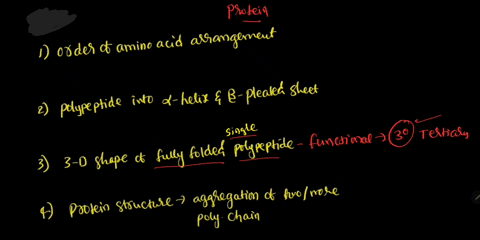 Protein
1) order of amino acid arrangement
2) polypeptide into α-helix & β-pleated sheet
single
3) 3-D shape of fully folded polypeptide - functional → 3° Tertiary
4) Protein structure → aggregation of two/more
poly. chain